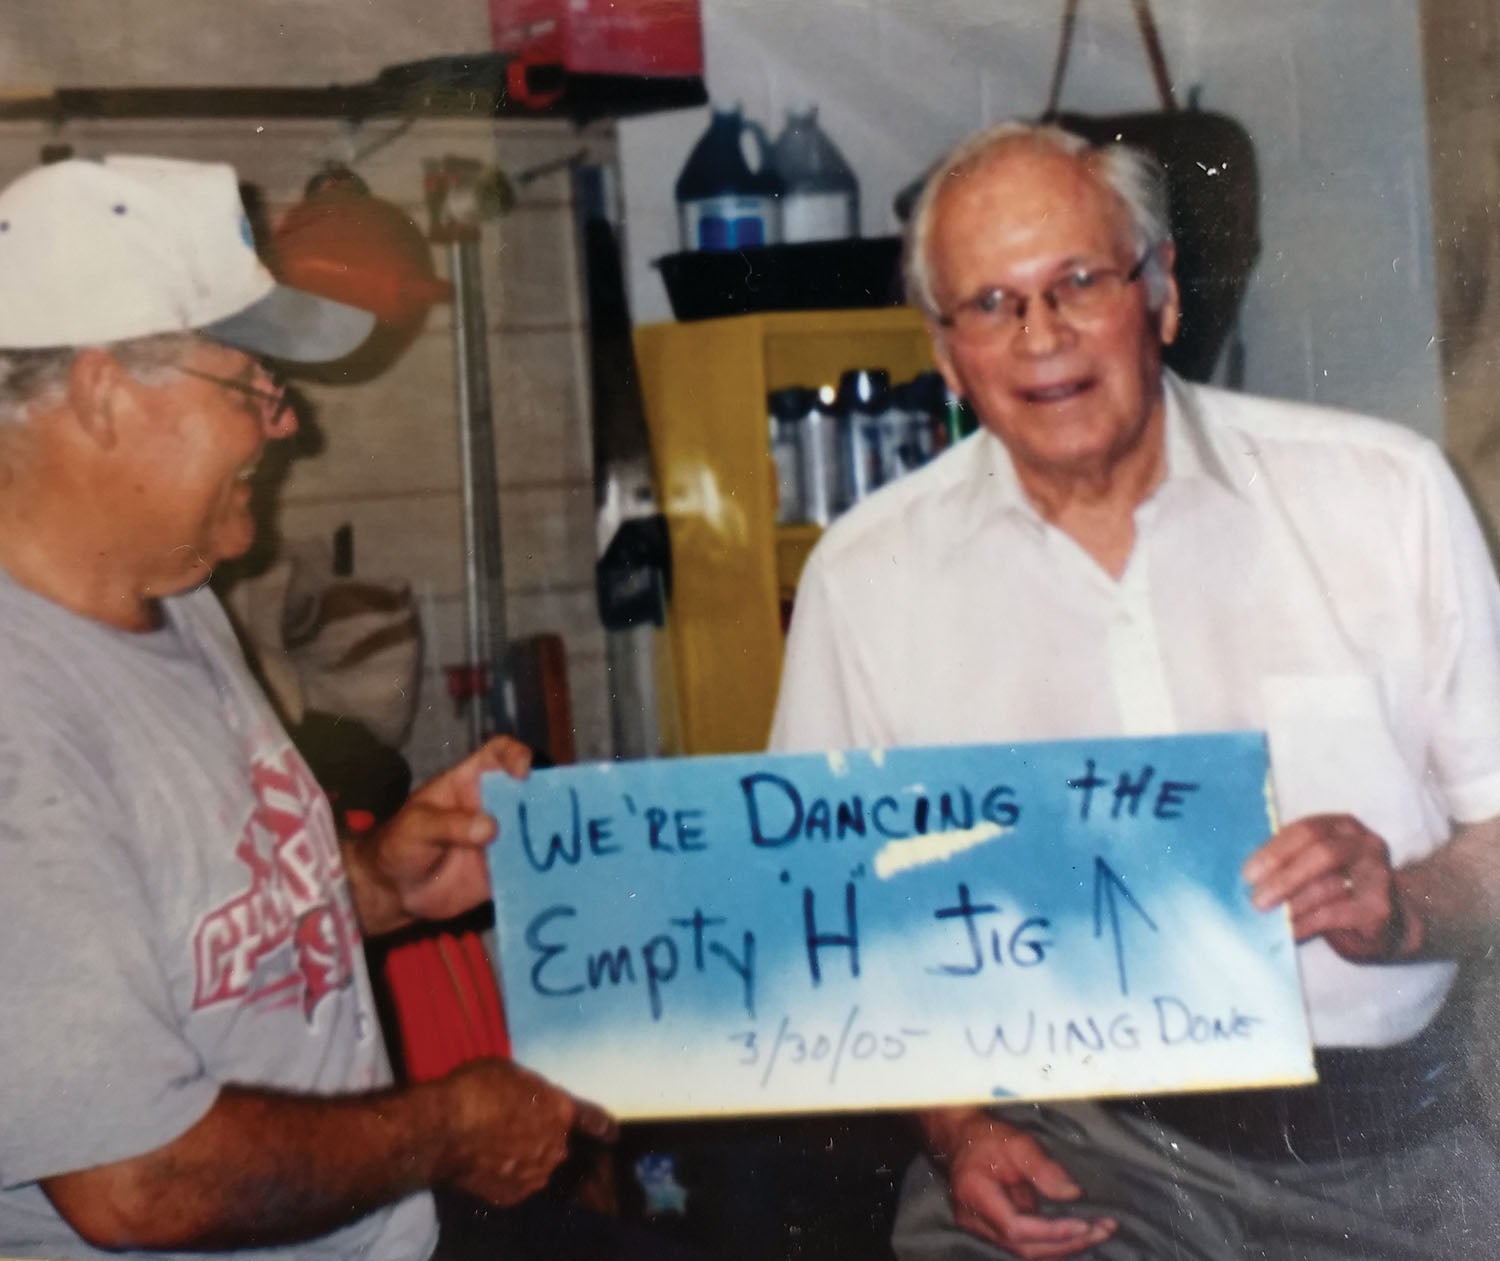 WE'RE DANCING THE
Empty "H" JIG ↑
3/30/05 WING DONE